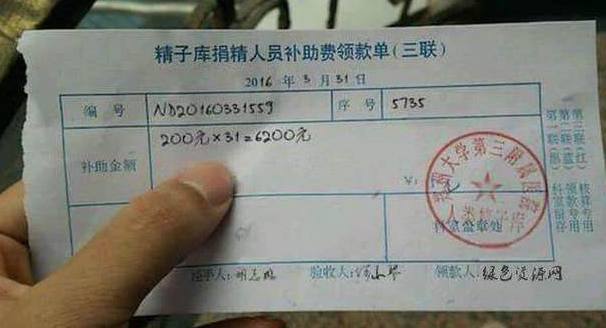 精子库捐精人员补助费领款单(三联)
2016 年 3 月 31 日
编 号 ND20160331559 序 号 5735
补助金额 200元×31=6200元
¥:
大学第三附属医院
人类精子库
科室盖章处
经手人: 验收人: 领款人: 绿色资源网
第一联(黑) 科室留存
第二联(蓝) 领款专用
第三联(红) 核算专用